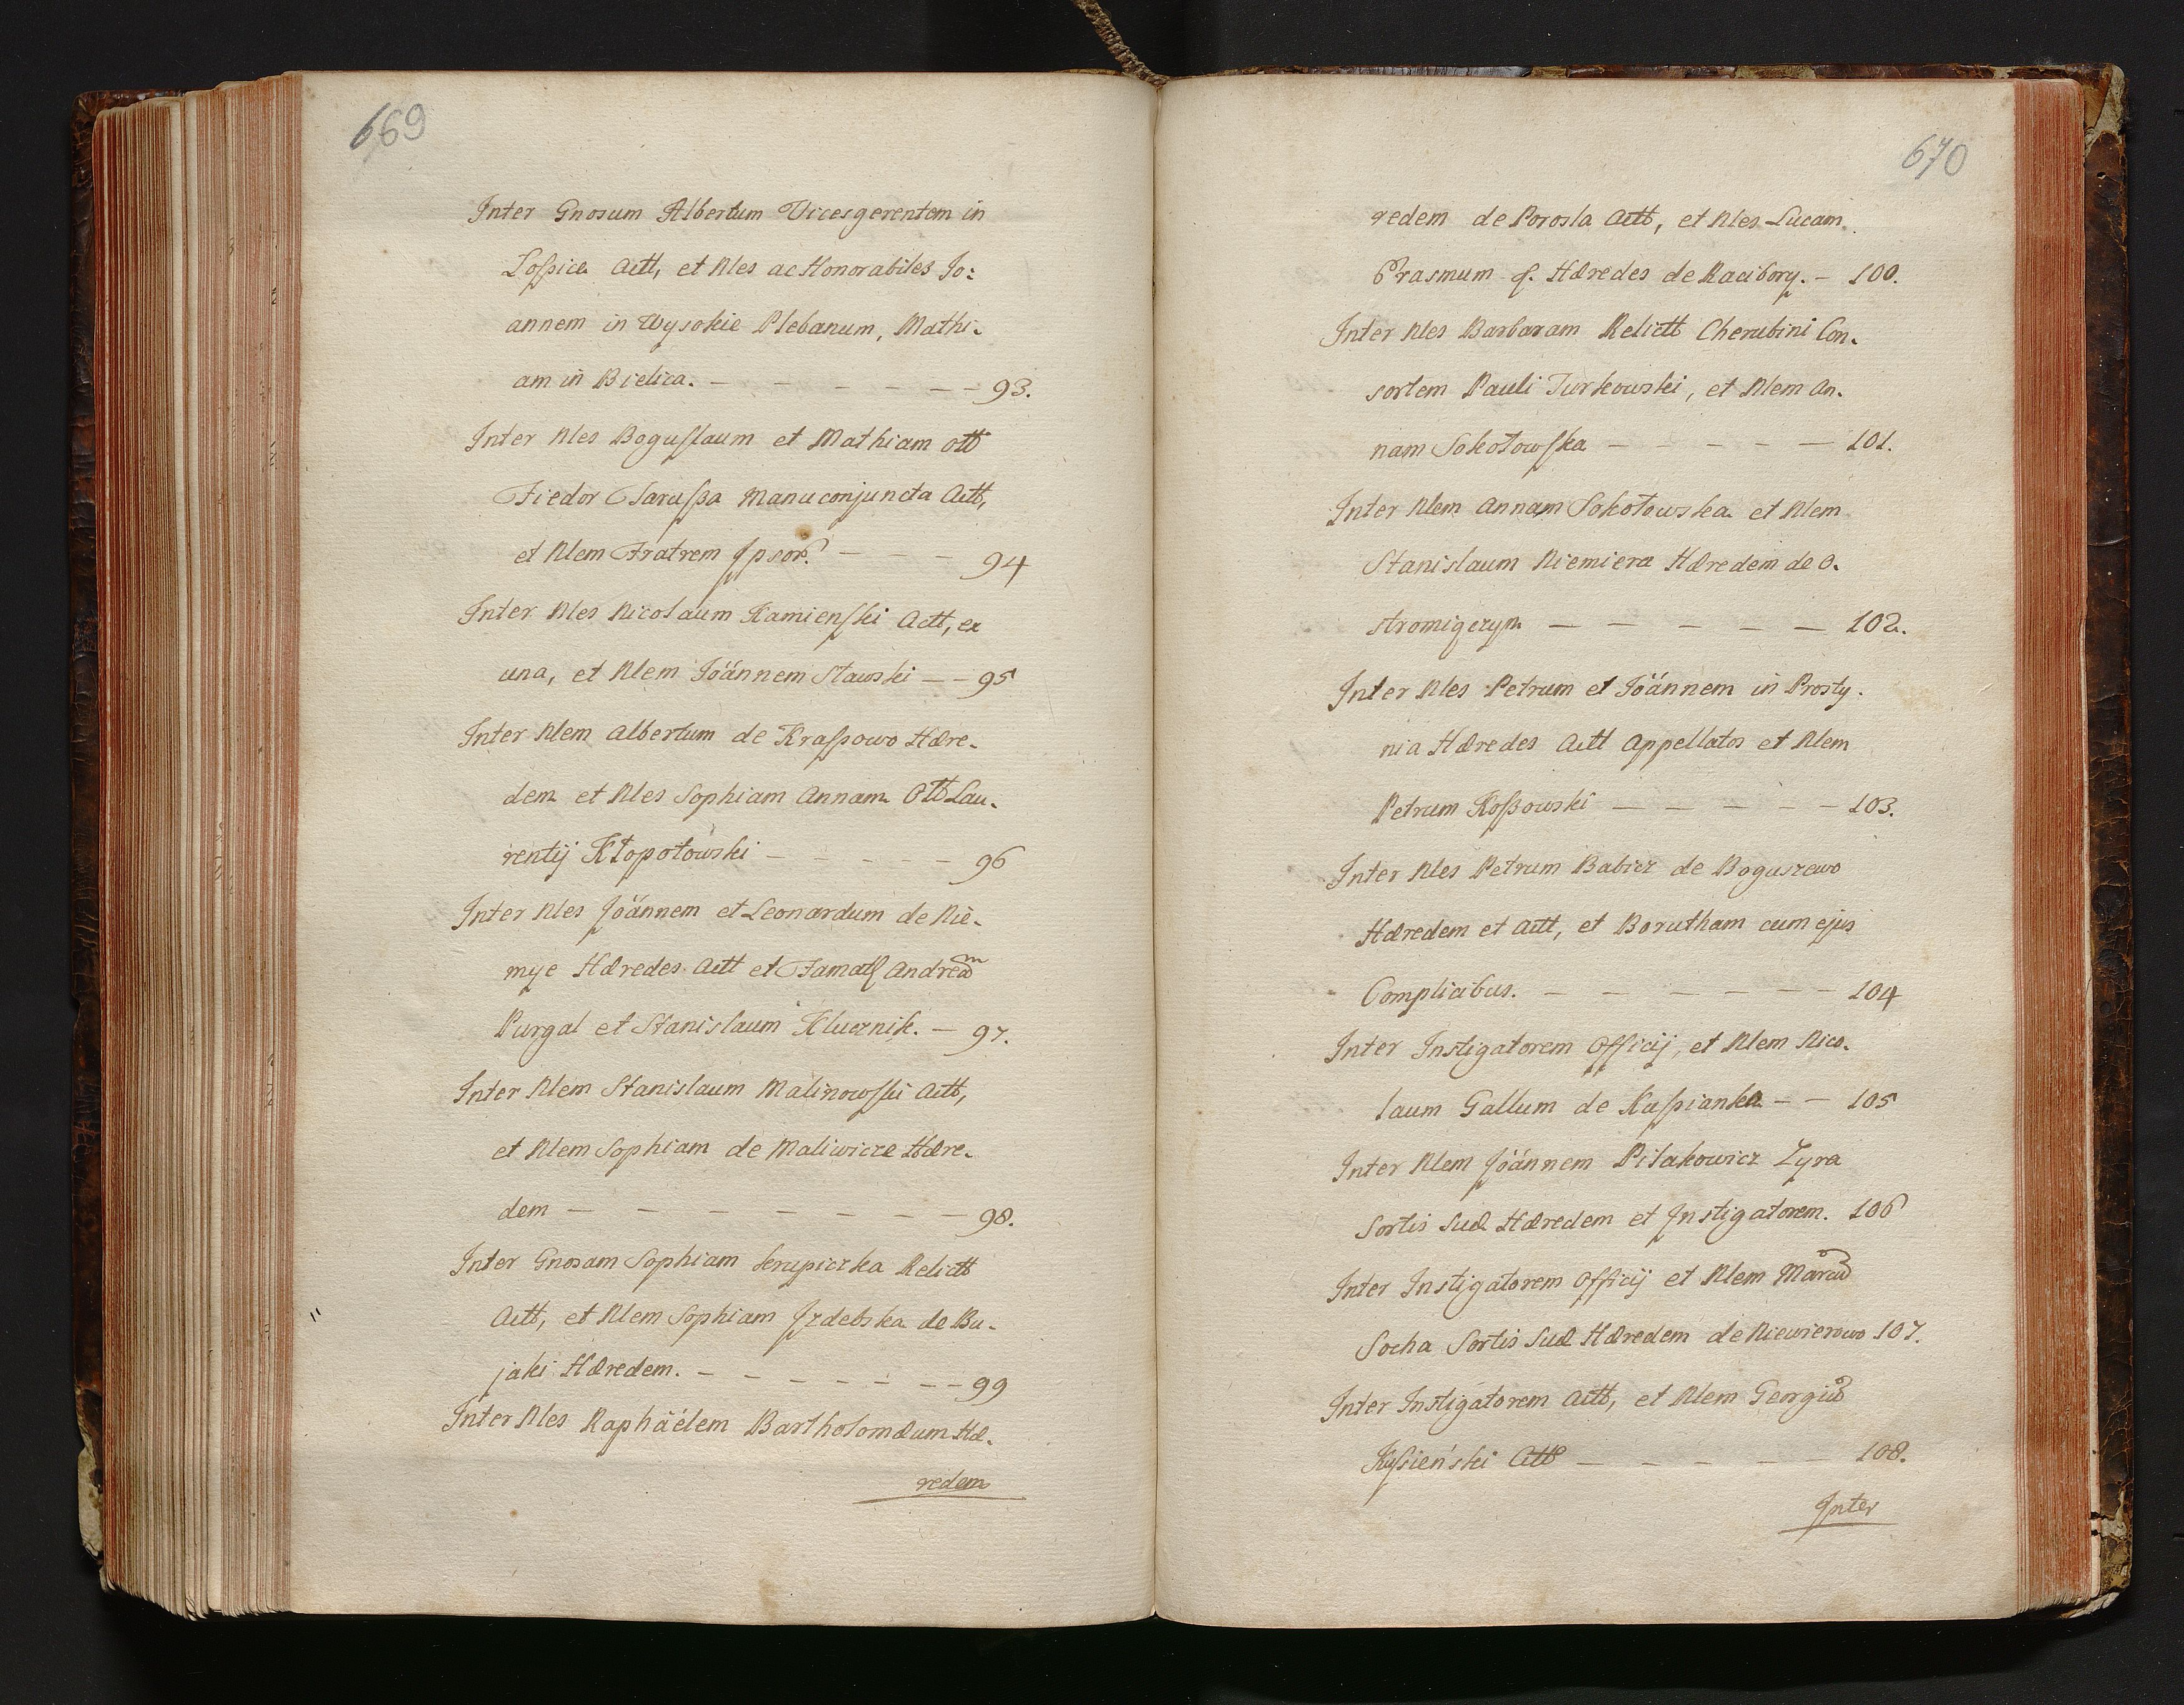 669
Inter Gnosum Albertum Vicesgerentem in
Loſsice Actt, et Nles ac Honorabiles Jo:
annem in Wysokie Plebanum, Mathi-
am in Bielica. — — — — — — 93.
Inter Nles Boguſlaum et Mathiam ott
Fiedor Taraſsa Manuconjuncta Actt,
et Nlem Fratrem Ipsor. — — — 94
Inter Nles Nicolaum Kamienſki Actt, ex
una, et Nlem Joánnem Stawski — — 95
Inter Nlem Albertum de Kraſsowo Hære-
dem et Nles Sophiam Annam Ott Lau-
rentij Kłopotowski — — — — — 96
Inter Nles Joánnem et Leonardum de Nie-
mye Hæredes Actt et Famatſ Andream
Purgal et Stanislaum Klucznik. — 97.
Inter Nlem Stanislaum Malinowſki Actt,
et Nlem Sophiam de Maliwicze Hære-
dem — — — — — — — 98.
Inter Gnosam Sophiam Serupiczka Relictt
Actt, et Nlem Sophiam Izdebska de Bu-
jaki Hæredem. — — — — — — 99
Inter Nles Raphäélem Bartholomæum Hæ-
redem
670
redem de Porosla Actt, et Nles Lucam
Erasmum q. Hæredes de Racibory. — 100.
Inter Nles Barbaram Relictt Cherubini Con-
sortem Pauli Turkowski, et Nlem An-
nam Sokołowſka — — — — — 101.
Inter Nlem Annam Sokołowska et Nlem
Stanislaum Niemiera Hæredem de O-
stromięczyn — — — — — 102.
Inter Nles Petrum et Joánnem in Prosty-
nia Hæredes Actt Appellatos et Nlem
Petrum Koſsowski — — — — — 103.
Inter Nles Petrum Babicz de Boguszewo
Hæredem et Actt, et Borutham cum ejus
Complicibus. — — — — — — 104
Inter Instigatorem Officij, et Nlem Nico-
laum Gallum de Kuſpianka — — 105
Inter Nlem Joánnem Pilakowicz Zyra
Sortis Suæ Hæredem et Instigatorem. 106
Inter Instigatorem Officij et Nlem Marcu
Socha Sortis Suæ Hæredem de Niewierowo 107.
Inter Instigatorem Actt, et Nlem Georgiu
Kyſień́ski Actt — — — — — 108.
Inter